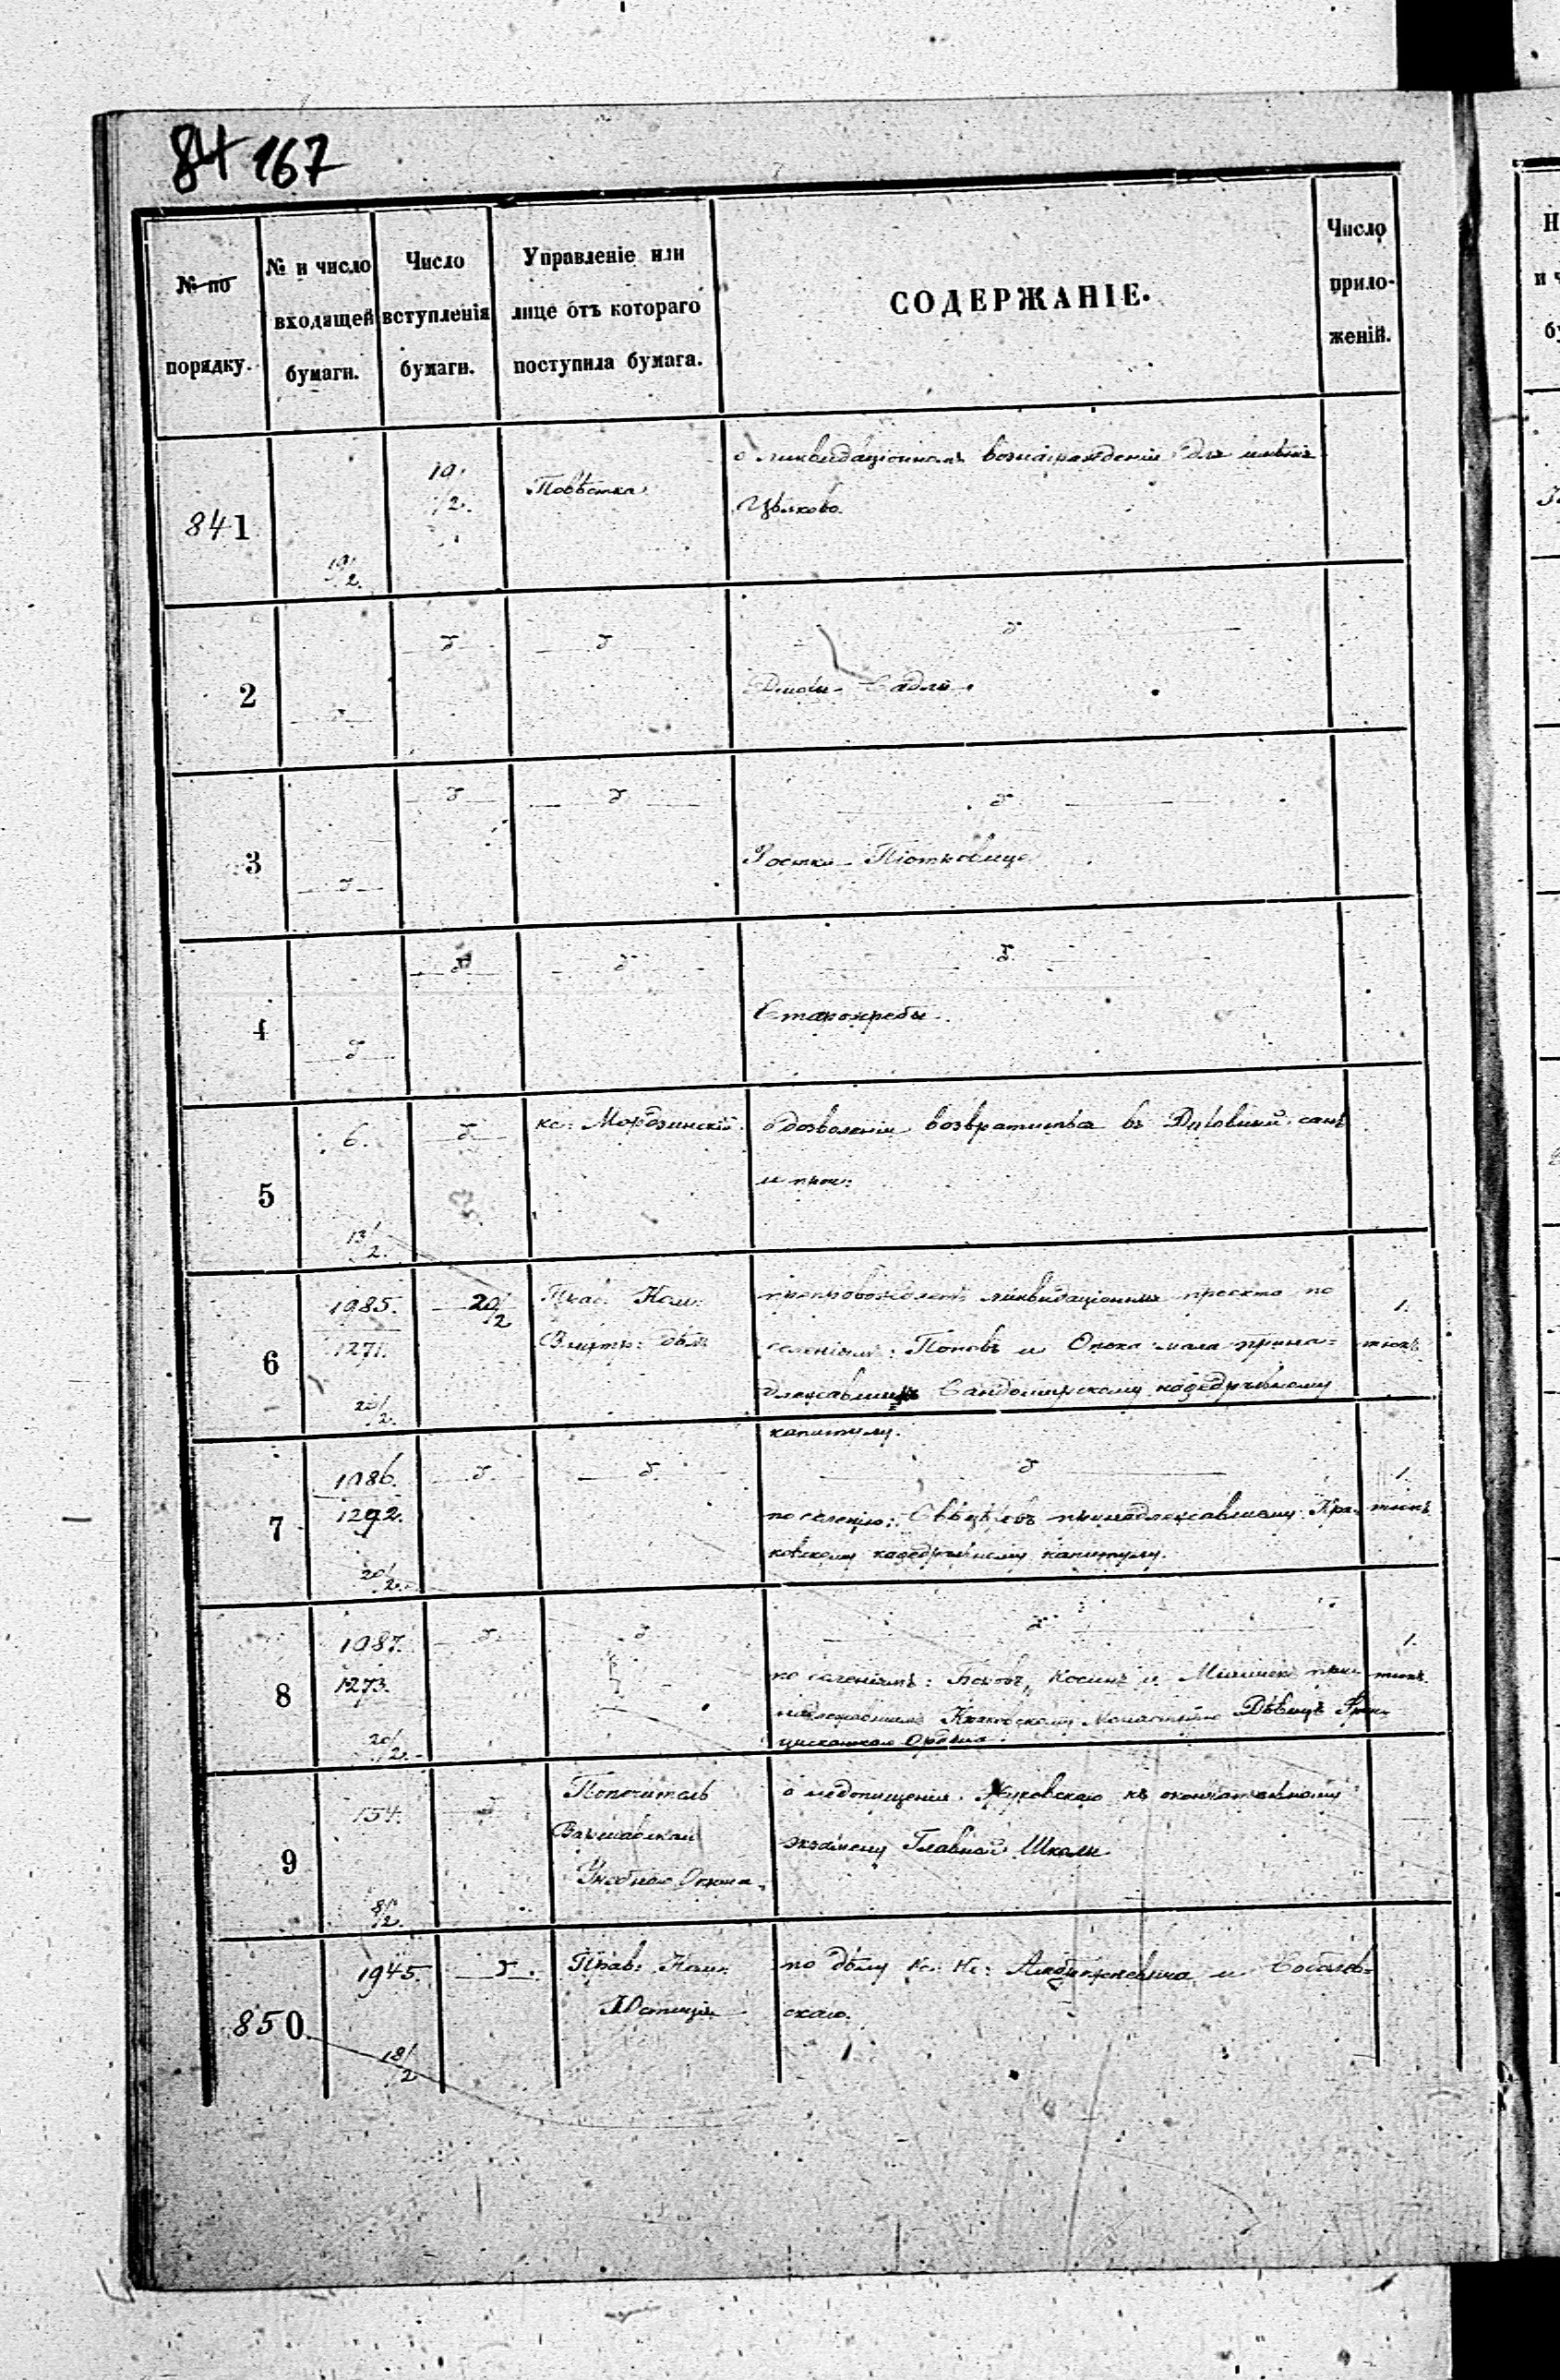 84 167
№ по
порядку.
№ и число
входящей
бумаги.
Число
вступленія
бумаги.
Управленіе или
лице отъ котораго
поступила бумага.
СОДЕРЖАНІЕ.
Число
прило-
женій.
841
19/2.
19.
/2.
Повѣстка
о ликвидаціонномъ вознагражденіи для имѣнія
Цѣлково.
2
Садли.
3
Ростки-Піотковице
4
Старожребы.
5
6.
13/2.
кс: Мордзинскій
о дозволеніи возвратиться въ Духовный санъ
и проч:
6
1985.
1271.
20/2.
20/2
Прав. Ком:
Внутр: дѣлъ
препровождаетъ ликвидаціонные проекта по
селеніямъ: Поповъ и Опока мала прина-
длежавшихъ Сандомирскому кафедральному
капитулу.
1.
7
1986.
1292.
20/2.
по селенію: принадлежавшему Кра-
ковскому кафедральному капитулу.
1.
8
1987.
1273.
20/2.
по селеніямъ: при-
надлежавшимъ Краковскому Монастырю Дѣвицъ Фран-
цисканскаго Ордена.
1.
9
154.
8/2.
Попечитель
Варшавскаго
Учебнаго Округа.
о недопущеніи Жуковскаго къ окончательному
экзамену Главной Школы
850
1945.
18/2
Прав: Ком:
Юстиціи
по дѣлу Кс: Кс: и Соболев-
скаго.